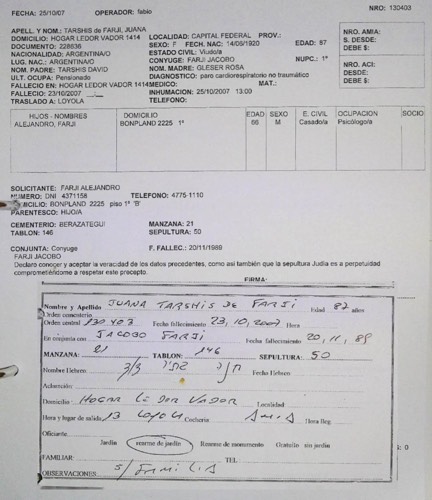 FECHA: 25/10/07 OPERADOR: fabio NRO: 130403
APELL. Y NOM.: TARSHIS de FARJI, JUANA
DOMICILIO: HOGAR LEDOR VADOR 1414 LOCALIDAD: CAPITAL FEDERAL PROV.:
DOCUMENTO: 228636 SEXO: F FECH. NAC: 14/06/1920 EDAD: 87
NACIONALIDAD: ARGENTINA/O ESTADO CIVIL: Viudo/a
LUG. NAC.: ARGENTINA/O CONYUGE: FARJI JACOBO NUPC.: 1º
NOM. PADRE: TARSHIS DAVID NOM. MADRE: GLESER ROSA
ULT. OCUPA: Pensionado DIAGNOSTICO: paro cardiorespiratorio no traumático
FALLECIO EN: HOGAR LEDOR VADOR 1414 MEDICO: MAT.:
FALLECIO: 23/10/2007 INHUMACION: 25/10/2007 13:00
TRASLADO A: LOYOLA TELEFONO:
NRO. AMIA:
S. DESDE:
DEBE $:
NRO. ACI:
DESDE:
DEBE $:
HIJOS - NOMBRES DOMICILIO EDAD SEXO E. CIVIL OCUPACION SOCIO
ALEJANDRO, FARJI BONPLAND 2225 1º 66 M Casado/a Psicólogo/a
SOLICITANTE: FARJI ALEJANDRO
NUMERO: DNI 4371158 TELEFONO: 4775-1110
DOMICILIO: BONPLAND 2225 piso 1º 'B'
PARENTESCO: HIJO/A
CEMENTERIO: BERAZATEGUI MANZANA: 21
TABLON: 146 SEPULTURA: 50
CONJUNTA: Conyuge F. FALLEC.: 20/11/1989
FARJI JACOBO
Declaro conocer y aceptar la veracidad de los datos precedentes, como así también que la sepultura Judía es a perpetuidad
comprometiéndome a respetar este precepto.
FIRMA:
Nombre y Apellido JUANA TARSHIS DE FARJI Edad 87 años
Orden cementerio
Orden central 130403 Fecha fallecimiento 23,10,2007 Hora
En conjunta con JACOBO FARJI Fecha fallecimiento 20,11,89
MANZANA: 21 TABLON: 146 SEPULTURA: 50
Nombre Hebreo Fecha Hebreo
Aclaración
Domicilio HOGAR LE DOR VADOR Localidad
Hora y lugar de salida 13 LOYOLA Cochería Hora lleg.
Oficiante
Jardín rearme de jardín Rearme de monumento Gratuito sin jardín
FAMILIAR TEL.
OBSERVACIONES S/ FAMILIA